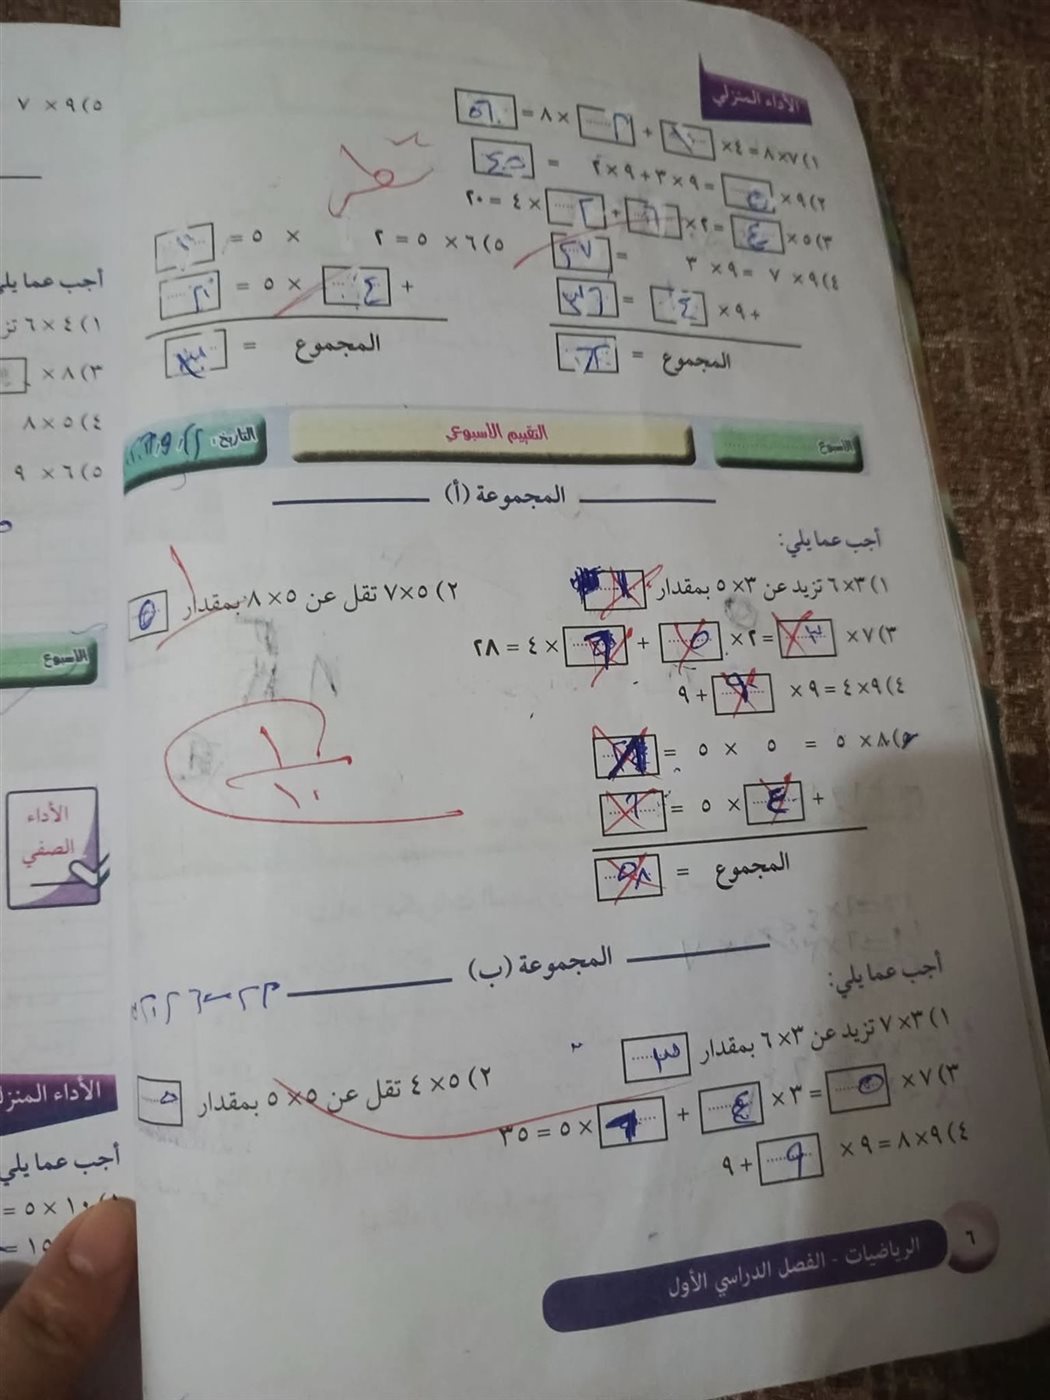 الأداء المنزلي
١) ٧×٨ = ٤× + ×٨ = ٥٦
٢) ٩× ٥ = ٩×٣ + ٩×٢ = ٤٥
٣) ٥× ٤ = ٢× + ×٤ = ٢٠
٤) ٩× ٧ = ٩× ٣ = ٢٧
+ ٩× ٤ = ٣٦
المجموع =
٥) ٦× ٥ = ٢ × ٥ =
+ ٤ × ٥ = ٢٠
المجموع = ٣٠
الأسبوع
التقييم الأسبوعي
التاريخ:
المجموعة (أ)
أجب عما يلي:
١) ٣×٦ تزيد عن ٣×٥ بمقدار
٢) ٥×٧ تقل عن ٥×٨ بمقدار ٥
٣) ٧× = ٢× ٥ + ×٤ = ٢٨
٤) ٩×٤ = ٩× + ٩
٥) ٨× ٥ = ٥ × ٥ =
+ ٤ × ٥ =
المجموع = ٥٨
١
١٠
المجموعة (ب)
أجب عما يلي:
١) ٣×٧ تزيد عن ٣×٦ بمقدار ٣
٢) ٥×٤ تقل عن ٥×٥ بمقدار ٥
٣) ٧× ٥ = ٣× ٤ + ×٥ = ٣٥
٤) ٩×٨ = ٩× ٩ + ٩
٦
الرياضيات - الفصل الدراسي الأول
٥) ٩× ٧
أجب عما يلي
١) ٤×٦
٣) ٨×
٤) ٥×٨
٥) ٦× ٩
الأسبوع
الأداء
الصفي
الأداء المنزل
أجب عما يلي
١٠× ٥ =
= ١٥